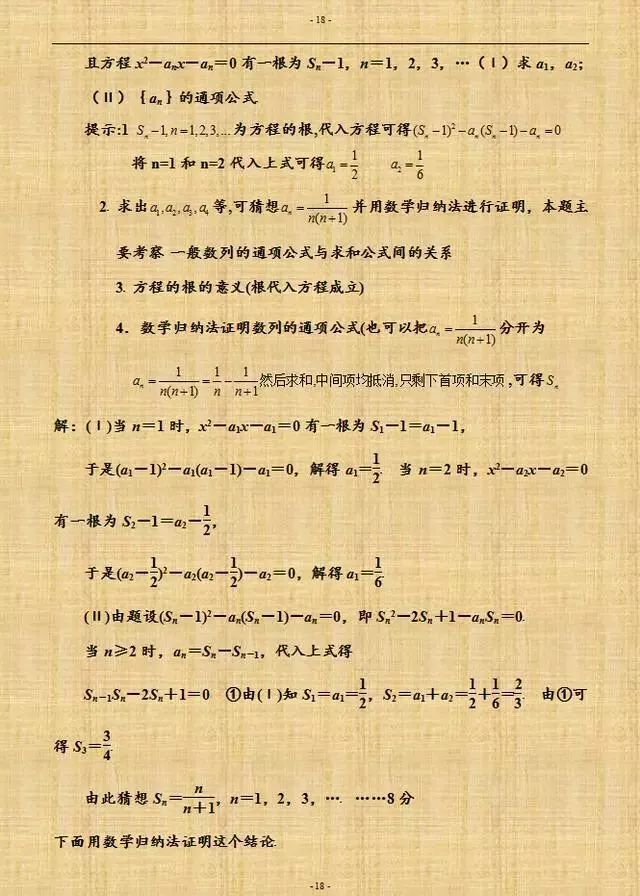 - 18 -
且方程 x²－aₙx－aₙ＝0 有一根为 Sₙ－1，n＝1，2，3，…（Ⅰ）求 a₁，a₂；
（II）｛aₙ｝的通项公式.
提示:1 Sₙ－1,n=1,2,3,...为方程的根,代入方程可得(Sₙ－1)²－aₙ(Sₙ－1)－aₙ=0
将 n=1 和 n=2 代入上式可得a₁=1/2 a₂=1/6
2. 求出a₁,a₂,a₃,a₄等,可猜想aₙ=1/n(n+1)并用数学归纳法进行证明，本题主
要考察 一般数列的通项公式与求和公式间的关系
3. 方程的根的意义(根代入方程成立)
4．数学归纳法证明数列的通项公式(也可以把aₙ=1/n(n+1)分开为
aₙ=1/n(n+1)=1/n-1/n+1然后求和,中间项均抵消,只剩下首项和末项,可得Sₙ
解：(Ⅰ)当 n＝1 时，x²－a₁x－a₁＝0 有一根为 S₁－1＝a₁－1，
于是(a₁－1)²－a₁(a₁－1)－a₁＝0，解得 a₁＝1/2. 当 n＝2 时，x²－a₂x－a₂＝0
有一根为 S₂－1＝a₂－1/2，
于是(a₂－1/2)²－a₂(a₂－1/2)－a₂＝0，解得 a₁＝1/6.
(Ⅱ)由题设(Sₙ－1)²－aₙ(Sₙ－1)－aₙ＝0，即 Sₙ²－2Sₙ＋1－aₙSₙ＝0.
当 n≥2 时，aₙ＝Sₙ－Sₙ₋₁，代入上式得
Sₙ₋₁Sₙ－2Sₙ＋1＝0 ①由(Ⅰ)知 S₁＝a₁＝1/2，S₂＝a₁＋a₂＝1/2＋1/6＝2/3. 由①可
得 S₃＝3/4.
由此猜想 Sₙ＝n/n＋1，n＝1，2，3，…. ……8 分
下面用数学归纳法证明这个结论.
- 18 -